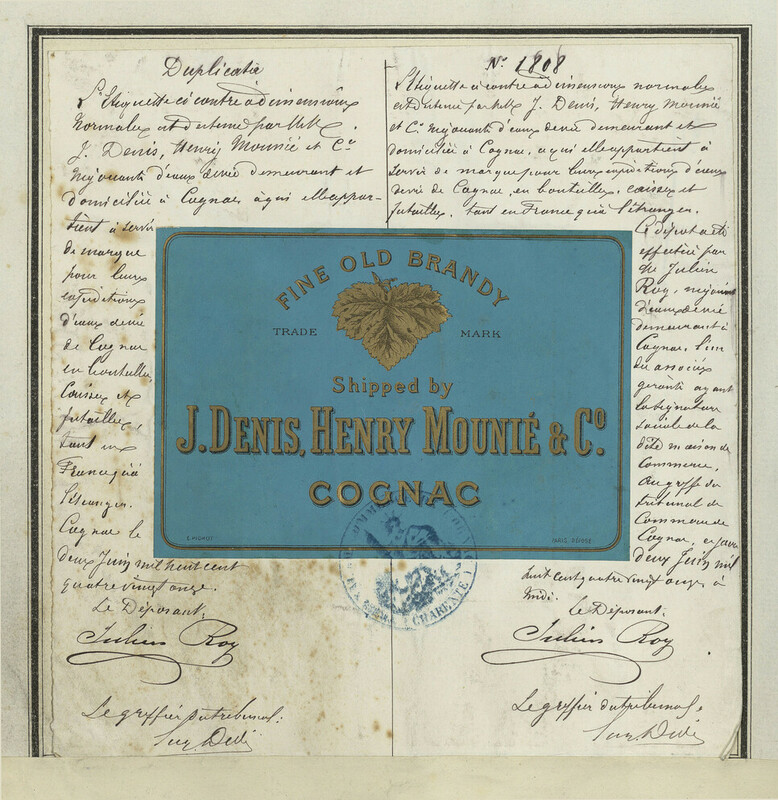 Duplicata
L'Etiquette ci contre a dimensions
normales est détenue par MM.
J. Denis, Henry Mounié et Co
négociants d'eaux devie demeurant et
domiciliés à Cognac, à qui elle appar-
tient à servir
de marque
pour leurs
expéditions
d'eaux devie
de Cognac
en bouteilles
Caisses et
futailles,
tant en
France qu'à
l'étranger.
Cognac le
deux Juin mil huit cent
quatre vingt onze.
Le Déposant:
Julien Roy
Le greffier du tribunal:
No 1808
L'Etiquette ci contre a dimensions normales
est détenue par MM. J. Denis, Henry Mounié
et Co négociants d'eaux devie demeurant et
domiciliés à Cognac, à qui elle appartient à
servir de marque pour leurs expéditions d'eaux
devie de Cognac, en bouteilles, caisses et
futailles, tant en France qu'à l'étranger.
Ce dépot a été
effectué par
Mr Julien
Roy, négociant
d'eaux devie
demeurant à
Cognac, l'un
des associés
gérants ayant
la signature
sociale de la
dite maison de
Commerce,
au greffe du
tribunal de
Commerce de
Cognac, ce jour
deux Juin mil
huit cent quatre vingt onze à
midi.
Le Déposant:
Julien Roy
Le greffier du tribunal:
FINE OLD BRANDY
TRADE MARK
Shipped by
J. DENIS, HENRY MOUNIÉ & Co.
COGNAC
CHARENTE